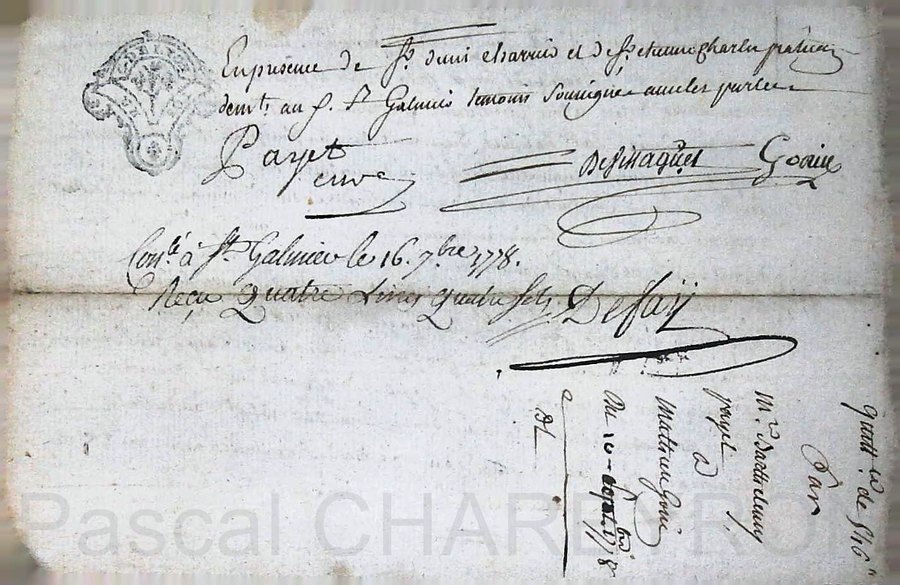 En presence de Sr. denis charvin et de Sr. etienne charles praticien
demts. au d. St Galmier temoins Soussignés avec les parties
Payet
Desinagues Goaire
Conlé à St Galmier le 16. 7bre 1778.
Reçu Quatre Livres quatre sols Defaÿ
quitt.ce de 546#
Par
Mr. Barthelemy
payet
a
Mathieu
Du 10 1778
Pascal CHARDYRON